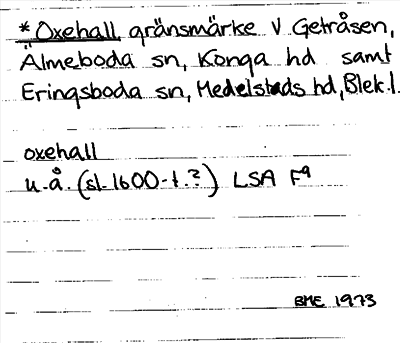 * Oxehall, gränsmärke V Getråsen,
Älmeboda sn, Konga hd samt
Eringsboda sn, Medelstads hd, Blek. l.
oxehall
u.å. (sl. 1600-t.?) LSA Fq
BME 1973